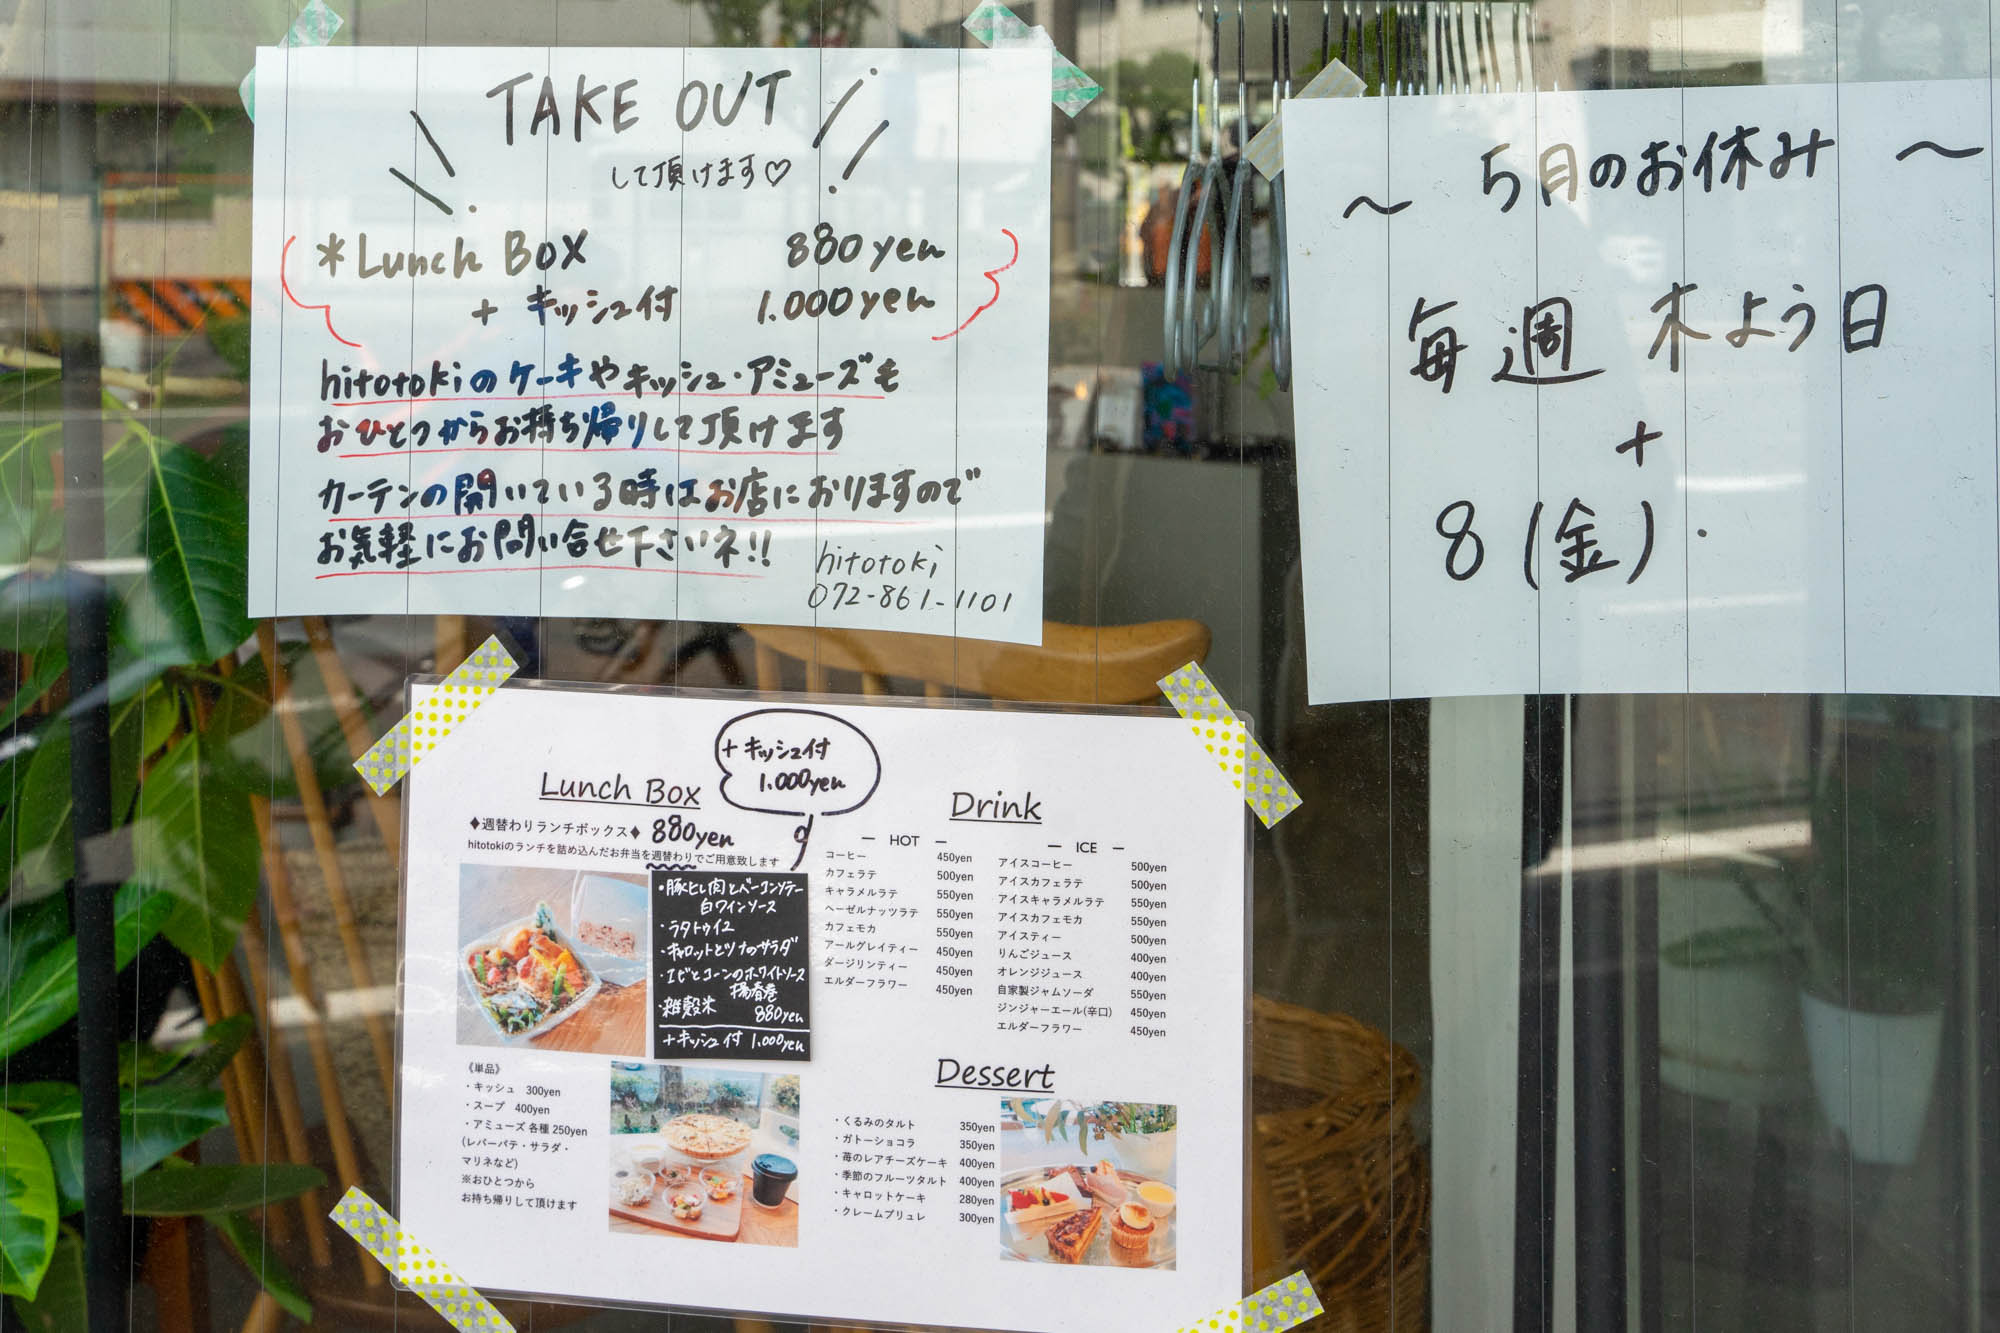 TAKE OUT
して頂けます♡
*Lunch Box 880yen
+ キッシュ付 1.000yen
hitotokiのケーキやキッシュ・アミューズも
おひとつからお持ち帰りして頂けます
カーテンの開いている時はお店におりますので
お気軽にお問い合せ下さいネ!!
hitotoki
072-861-1101
〜 5月のお休み 〜
毎週 木よう日
+
8(金).
+キッシュ付
1.000yen
Lunch Box
◆週替わりランチボックス◆ 880yen
hitotokiのランチを詰め込んだお弁当を週替わりでご用意致します
・豚ヒレ肉とベーコンソテー
白ワインソース
・ラタトゥイユ
・キャロットとツナのサラダ
・エビとコーンのホワイトソース
揚春巻
・雑穀米 880yen
+キッシュ付 1.000yen
《単品》
・キッシュ 300yen
・スープ 400yen
・アミューズ 各種 250yen
(レバーパテ・サラダ・
マリネなど)
※おひとつから
お持ち帰りして頂けます
Drink
― HOT ―
コーヒー 450yen
カフェラテ 500yen
キャラメルラテ 550yen
ヘーゼルナッツラテ 550yen
カフェモカ 550yen
アールグレイティー 450yen
ダージリンティー 450yen
エルダーフラワー 450yen
― ICE ―
アイスコーヒー 500yen
アイスカフェラテ 500yen
アイスキャラメルラテ 550yen
アイスカフェモカ 550yen
アイスティー 500yen
りんごジュース 400yen
オレンジジュース 400yen
自家製ジャムソーダ 550yen
ジンジャーエール(辛口) 450yen
エルダーフラワー 450yen
Dessert
・くるみのタルト 350yen
・ガトーショコラ 350yen
・苺のレアチーズケーキ 400yen
・季節のフルーツタルト 400yen
・キャロットケーキ 280yen
・クレームブリュレ 300yen